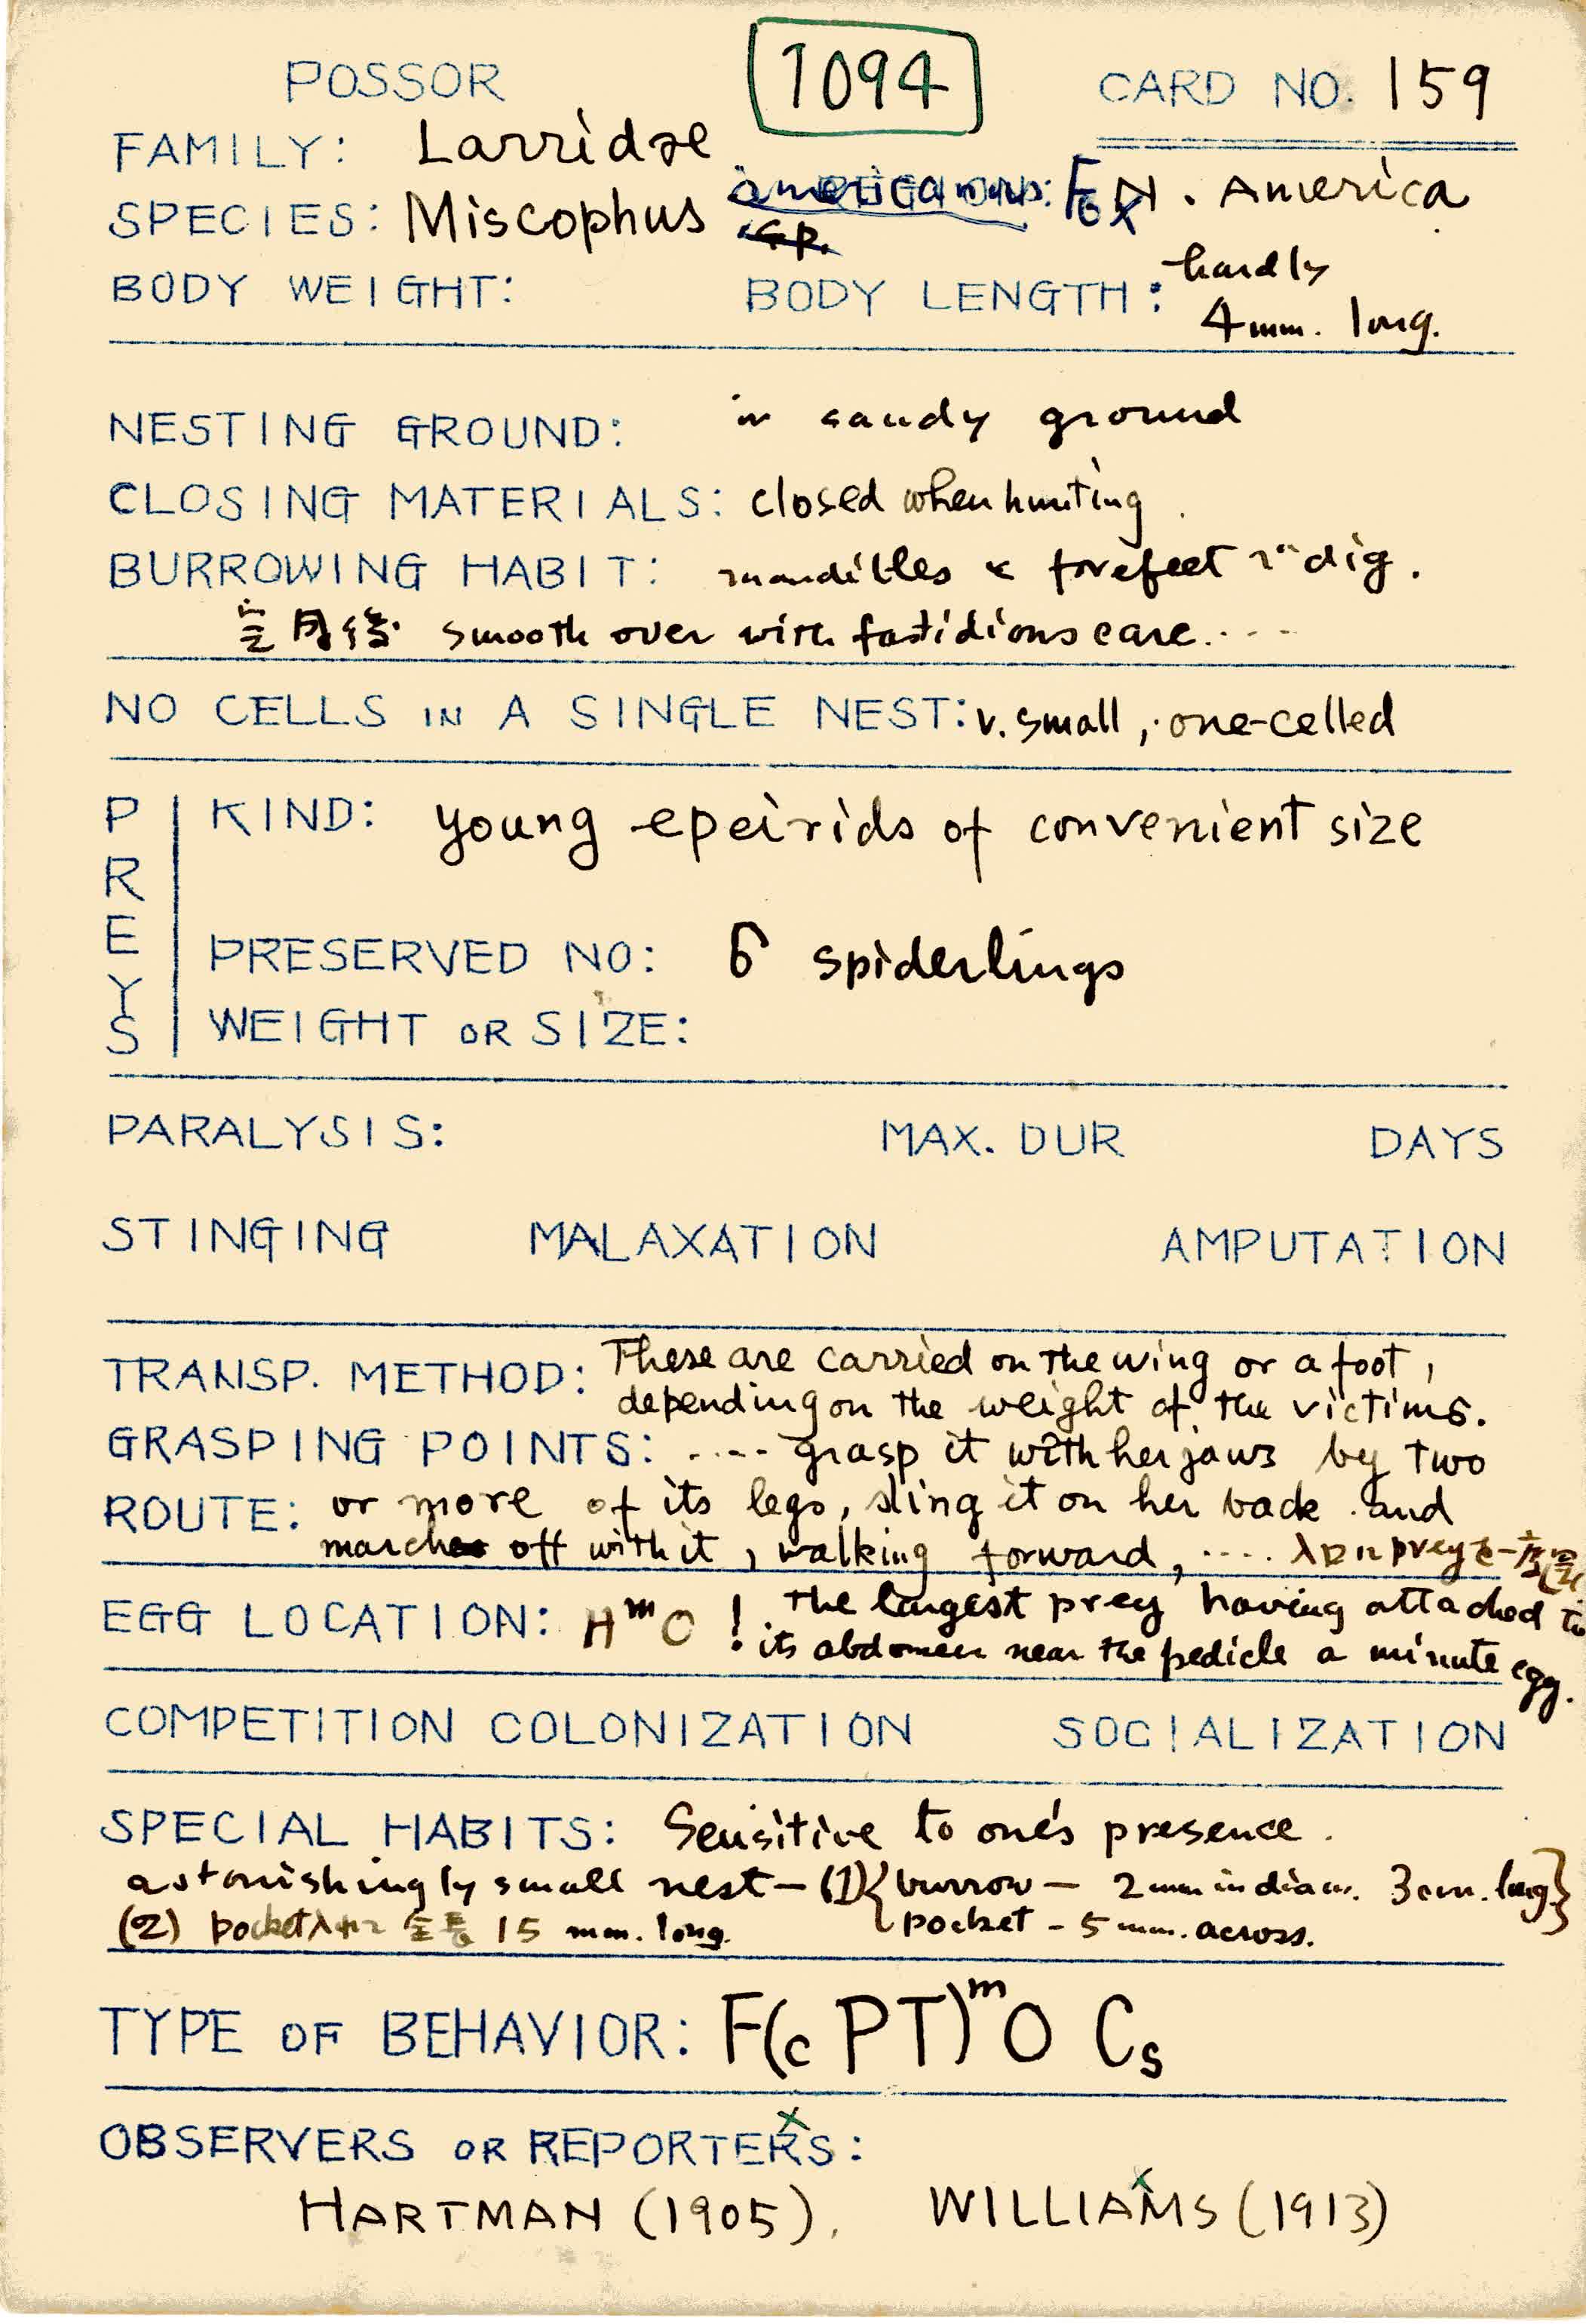 POSSOR 1094 CARD NO. 159
FAMILY: Larridae
SPECIES: Miscophus americanus N. America
sp.
BODY WEIGHT: BODY LENGTH: hardly
4 mm. long.
NESTING GROUND: in sandy ground
CLOSING MATERIALS: closed when hunting.
BURROWING HABIT: mandibles & forefeet dig.
smooth over with fastidious care....
NO CELLS IN A SINGLE NEST: v. small, one-celled
PREYS
KIND: young epeirids of convenient size
PRESERVED NO: 6 spiderlings
WEIGHT OR SIZE:
PARALYSIS: MAX. DUR DAYS
STINGING MALAXATION AMPUTATION
TRANSP. METHOD: These are carried on the wing or a foot,
depending on the weight of the victims.
GRASPING POINTS: .... grasp it with her jaws by two
ROUTE: or more of its legs, sling it on her back and
march off with it, walking forward, .... prey
EGG LOCATION: HᵐO! The largest prey having attached to
its abdomen near the pedicle a minute egg.
COMPETITION COLONIZATION SOCIALIZATION
SPECIAL HABITS: Sensitive to one's presence.
astonishingly small nest – (1) { burrow – 2 mm in diam. 3 cm. long }
pocket – 5 mm. across.
(2) pocket 15 mm. long.
TYPE OF BEHAVIOR: F(c PT)ᵐO Cs
OBSERVERS OR REPORTERS:
HARTMAN (1905), WILLIAMS (1913)